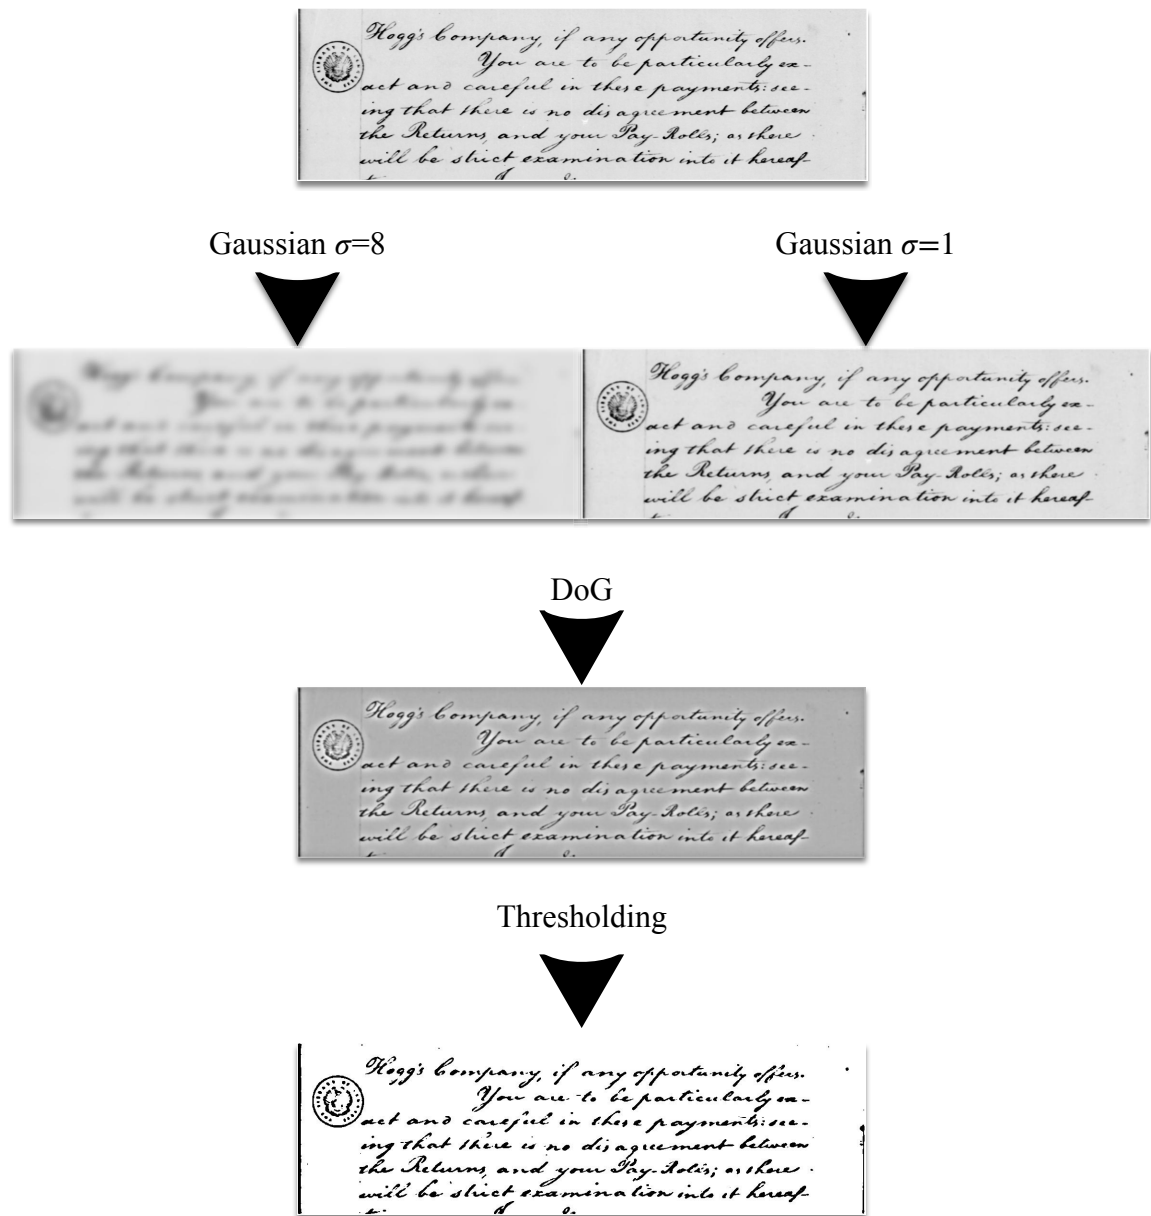 Hogg's Company, if any opportunity offers.
You are to be particularly ex-
act and careful in these payments: see-
ing that there is no disagreement between
the Returns, and your Pay-Rolls; as there
will be strict examination into it hereaf-
Gaussian σ=8
Gaussian σ=1
Hogg's Company, if any opportunity offers.
You are to be particularly ex-
act and careful in these payments: see-
ing that there is no disagreement between
the Returns, and your Pay-Rolls; as there
will be strict examination into it hereaf-
Hogg's Company, if any opportunity offers.
You are to be particularly ex-
act and careful in these payments: see-
ing that there is no disagreement between
the Returns, and your Pay-Rolls; as there
will be strict examination into it hereaf-
DoG
Hogg's Company, if any opportunity offers.
You are to be particularly ex-
act and careful in these payments: see-
ing that there is no disagreement between
the Returns, and your Pay-Rolls; as there
will be strict examination into it hereaf-
Thresholding
Hogg's Company, if any opportunity offers.
You are to be particularly ex-
act and careful in these payments: see-
ing that there is no disagreement between
the Returns, and your Pay-Rolls; as there
will be strict examination into it hereaf-